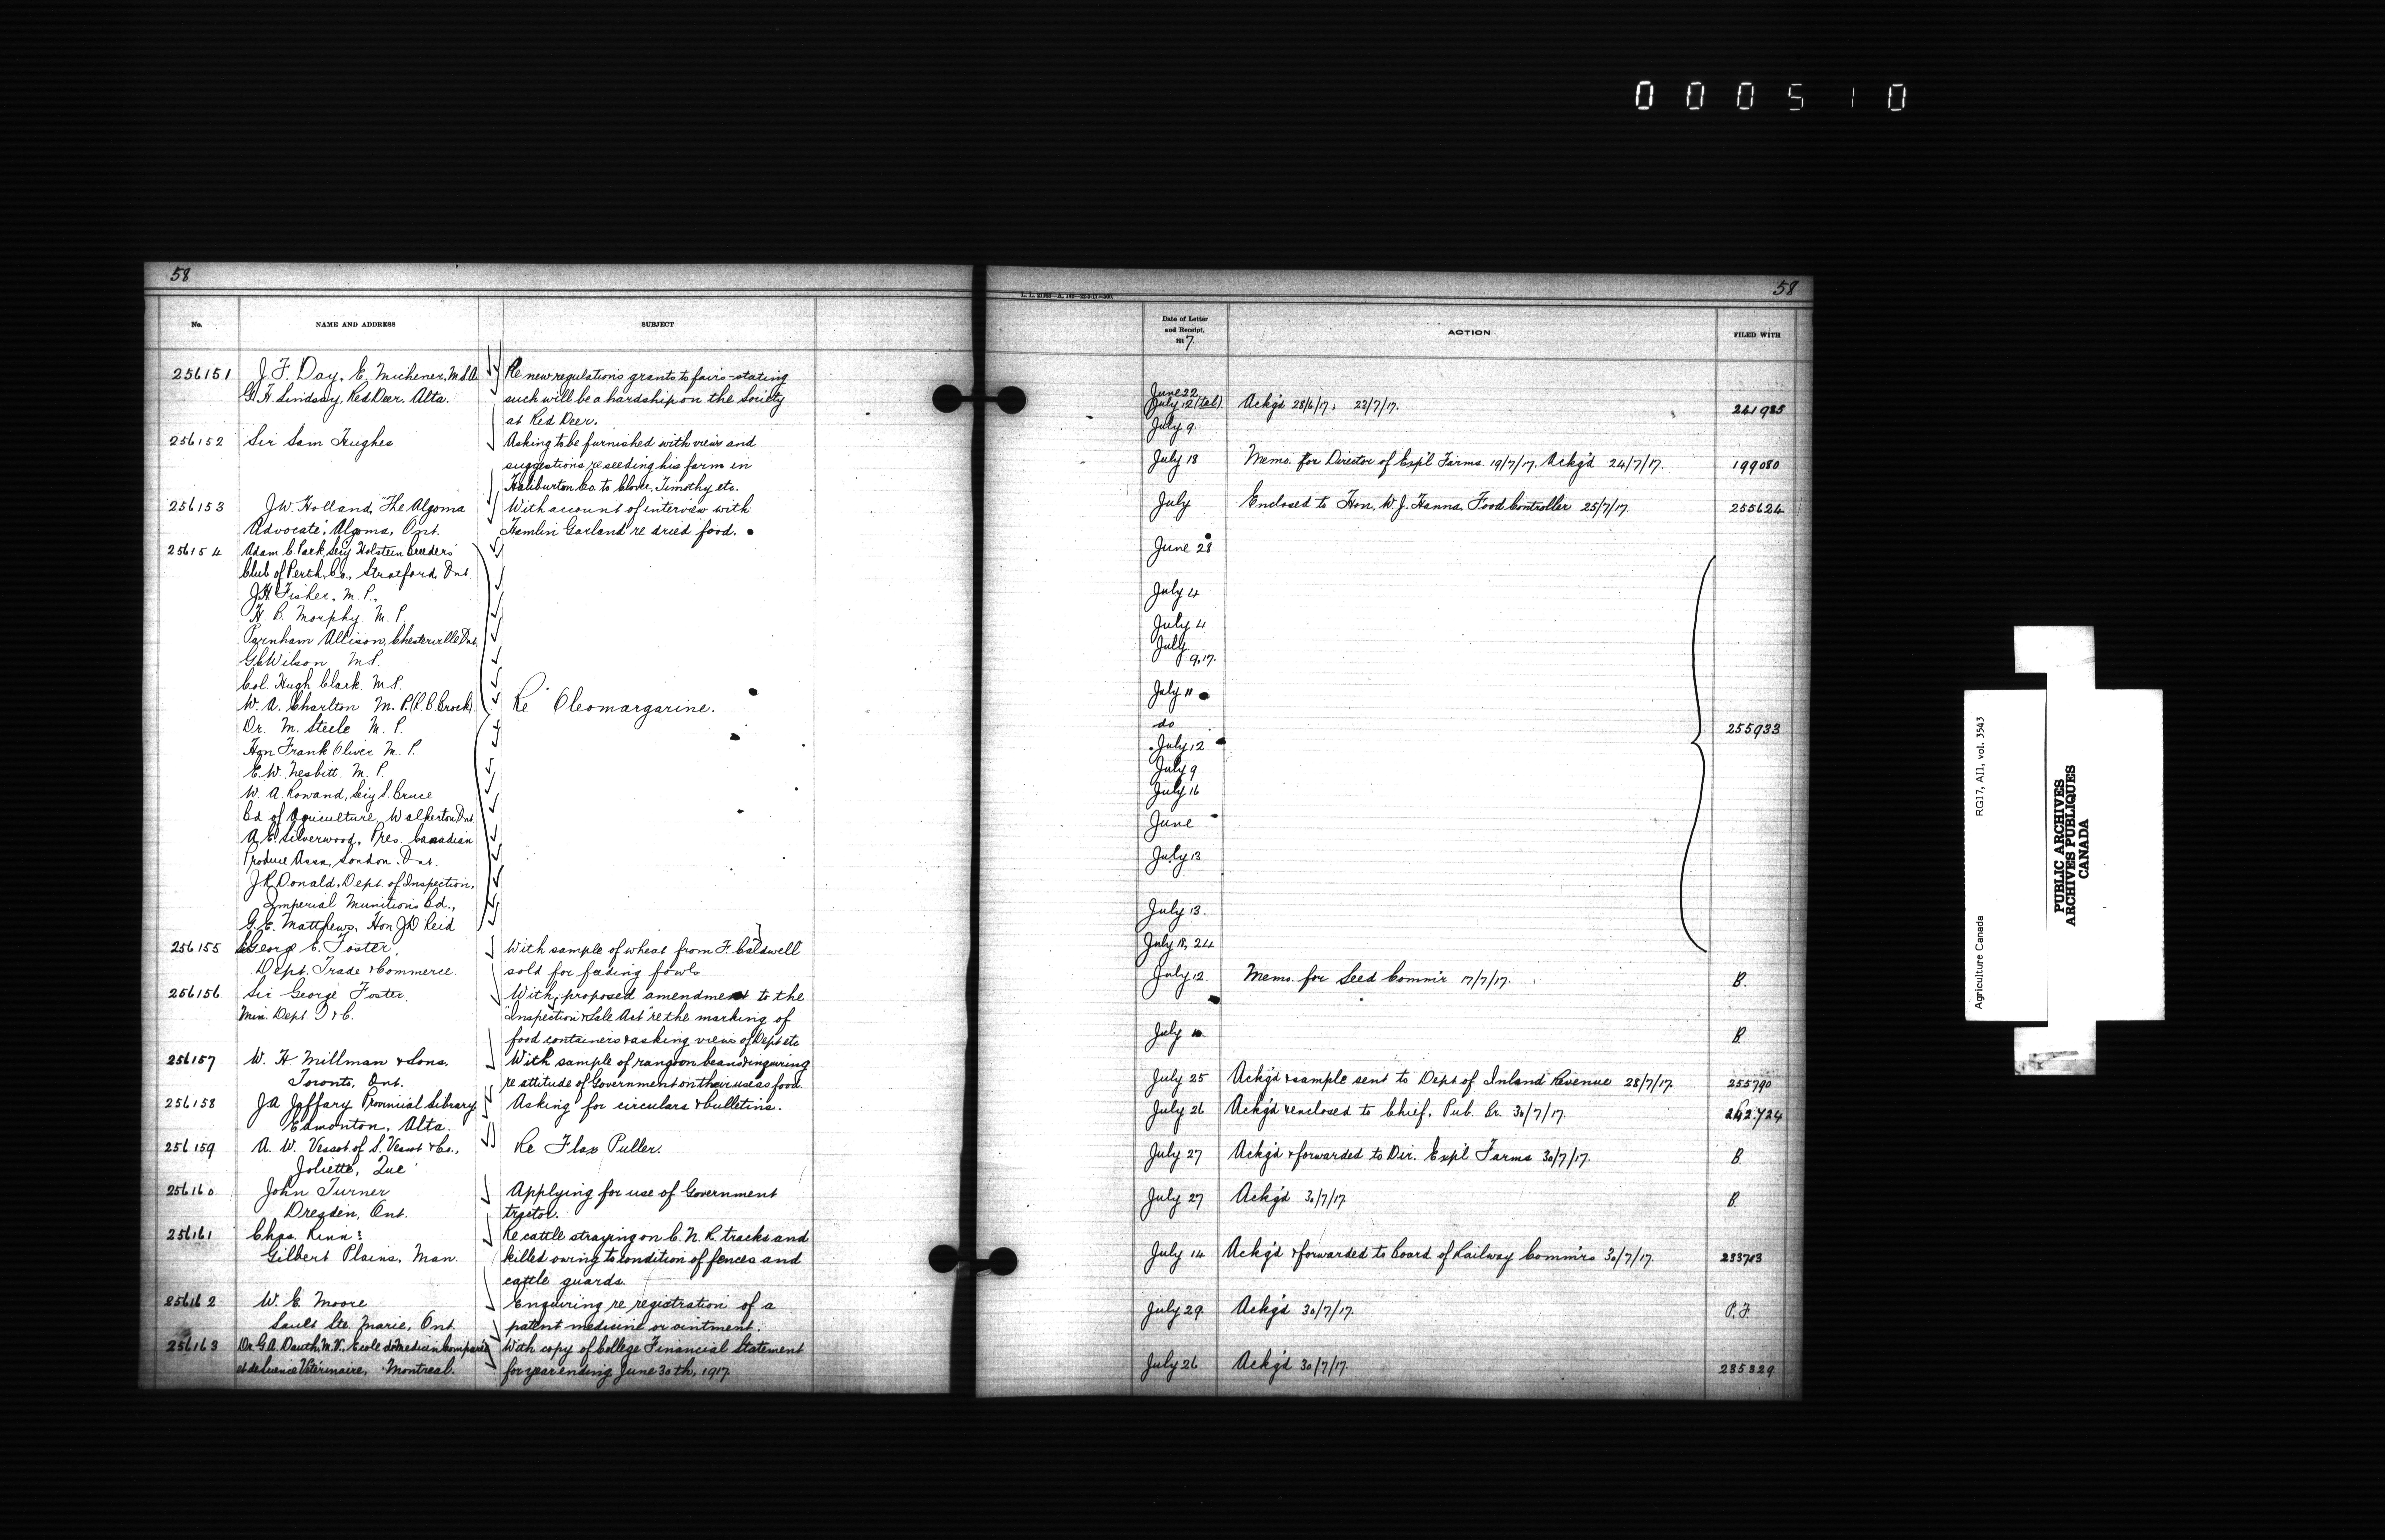 000510
58
No.
NAME AND ADDRESS
SUBJECT
256151 J. F. Day, E. Michener, M.L.A. Re new regulations grants to fairs - stating
G. H. Lindsay, Red Deer, Alta. such will be a hardship on the Society
at Red Deer.
256152 Sir Sam Hughes. Asking to be furnished with views and
suggestions re seeding his farm in
Haliburton Co. to Clover, Timothy etc.
256153 J.W. Holland, "The Algoma With account of interview with
Advocate", Algoma, Ont. Hamlin Garland re dried food.
256154 Adam C. Park, Sec'y Holstein Breeders'
Club of Perth Co., Stratford, Ont.
J.H. Fisher, M. P.,
H. B. Morphy M. P.
Parnham Allison, Chesterville Ont.
G.C. Wilson M.P.
Col. Hugh Clark M.P.
W. A. Charlton M. P. (R. B. Brock) Re Oleomargarine.
Dr. M. Steele M. P.
Hon Frank Oliver M. P.
E. W. Nesbitt M. P.
W. A. Rowand, Sec'y S. Bruce
Bd of Agriculture, Walkerton Ont.
A. E. Silverwood, Pres. Canadian
Produce Assn, London, Ont.
J.R. Donald, Dept. of Inspection,
Imperial Munitions Bd.,
G. E. Matthews, Hon J D Reid
256155 George E. Foster, With sample of wheat from F. Caldwell
Dept. Trade & Commerce. sold for feeding fowls
256156 Sir George Foster, With proposed amendment to the
Min. Dept. T & C. "Inspection & Sale Act" re the marking of
food containers & asking views of Dept etc
256157 W. H. Millman & Sons, With sample of rangoon beans & inquiring
Toronto, Ont. re attitude of Government on their use as food.
256158 J.A. Jaffary Provincial Library Asking for circulars & bulletins.
Edmonton, Alta.
256159 A. W. Vessot of S. Vessot & Co., Re Flax Puller.
Joliette, Que
256160 John Turner Applying for use of Government
Dresden, Ont. tractor.
256161 Chas. Rinn: Re cattle straying on C. N. R. tracks and
Gilbert Plains, Man. killed owing to condition of fences and
cattle guards.
256162 W. E. Moore Enquiring re registration of a
Sault Ste. Marie, Ont. patent medicine or ointment.
256163 Dr. G.A. Dauth, M.V., Ecole de Medecin Comparée With copy of College Financial Statement
et de Science Vétérinaire, Montreal. for year ending June 30th, 1917.
58
Date of Letter
and Receipt,
191 7.
ACTION
FILED WITH
June 22
July 12 (tel) Ackg'd 28/6/17, 23/7/17. 241985
July 9.
July 18 Memo. for Director of Exp'l Farms. 19/7/17. Ackg'd 24/7/17. 199080
July Enclosed to Hon. W. J. Hanna, Food Controller 25/7/17. 255624
June 28
July 4
July 4
July
9, 17.
July 11
do 255933
July 12
July 9
July 16
June
July 13
July 13.
July 18, 24
July 12. Memo. for Seed Comm'r 17/7/17. B.
July B.
July 25 Ackg'd & sample sent to Dept of Inland Revenue 28/7/17. 255790
July 26 Ackg'd & enclosed to Chief, Pub. Br. 30/7/17. 242724
July 27 Ackg'd & forwarded to Dir. Exp'l Farms 30/7/17. B.
July 27 Ackg'd 30/7/17. B.
July 14 Ackg'd & forwarded to Board of Railway Comm'rs 30/7/17. 233713
July 29. Ackg'd 30/7/17. P. F.
July 26 Ackg'd 30/7/17. 235329
Agriculture Canada RG17, AII, vol. 3543
PUBLIC ARCHIVES
ARCHIVES PUBLIQUES
CANADA